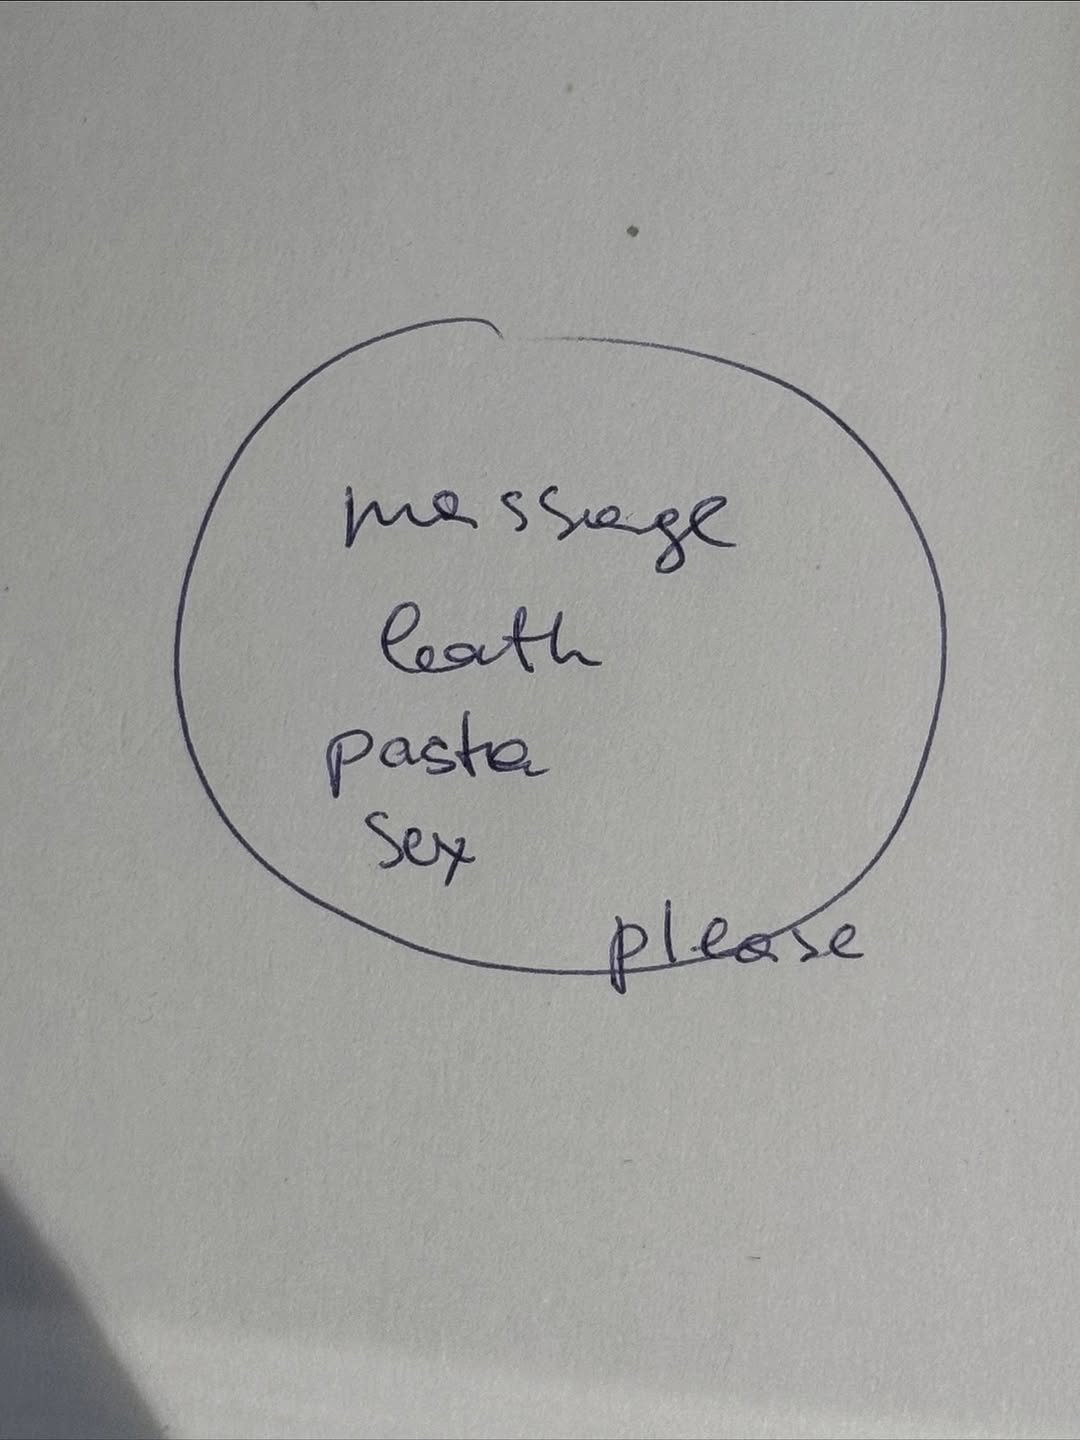 massage
bath
pasta
sex
please